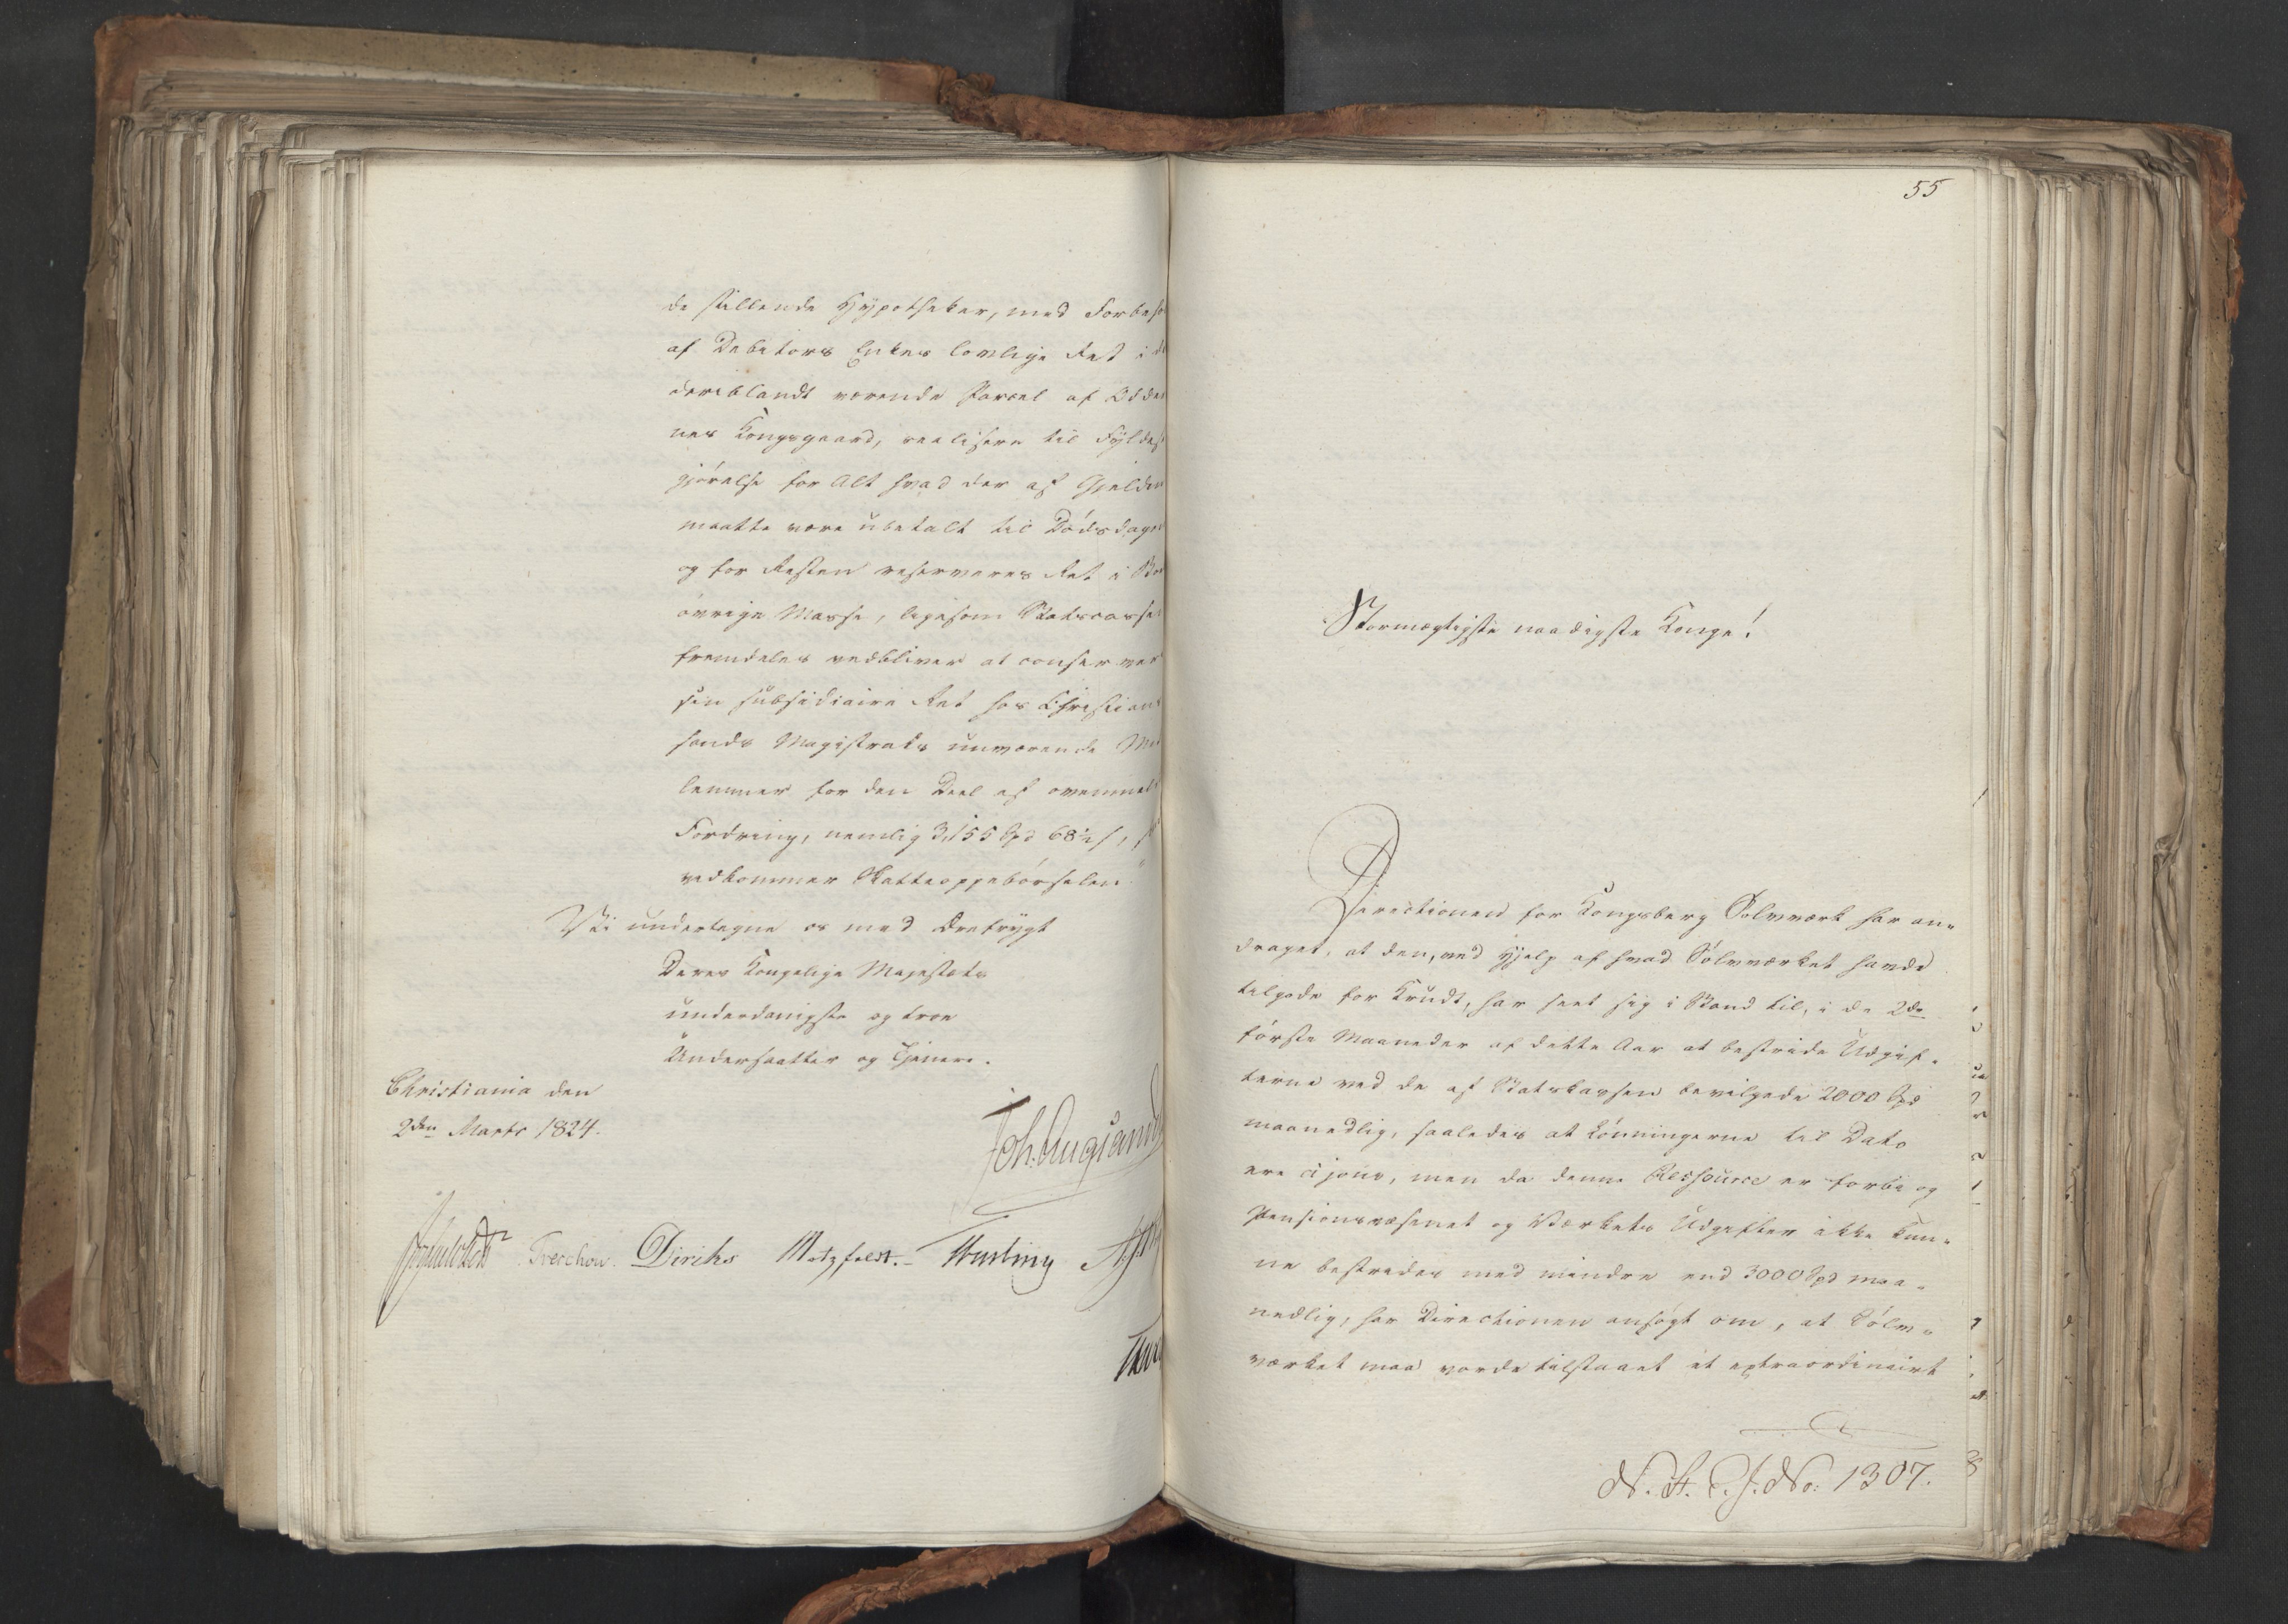 de stillende Hypotheker, med Forbeho
af Debitors Enkes lovlige Ret i de
deriblandt værende Parcel af Odder
nes Kongsgaard, realisere til Fyldest
gjörelse for Alt hvad der af Gjelden
maatte være ubetalt til Dödsdagen
og for Resten reserveres Ret i Boe
övrige Masse, ligesom Statscassen
fremdeles vedbliver at conserver
sin subsidiaire Ret hos Christian
sands Magistrats nuværende Me
lemmer for den Deel af ovenmel
Fordring, nemlig 3,155 Spd 68½ s,
vedkommer Skatteoppebörselen."
Vi undertegne os med Drefrygt
Deres Kongelige Majestæts
underdanigste og troe
Undersaatter og Tjenere.
Christiania den
2den Marts 1824.
Joh. Aug. Sand
Treschow. Diriks Motzfeldt.
55
Stormægtigste naadigste Konge!
Directionen for Kongsberg Sölvværk har an-
draget, at den, ved Hjelp af hvad Sölvværket havde
tilgode for Krudt, har seet sig i Stand til, i de 2de
förste Maaneder af dette Aar at bestride Udgif-
terne ved de af Statskassen bevilgede 2000 Spd
maanedlig, saaledes at Lönningerne til Dato
ere ajour, men da denne Ressource er forbi og
Pensionsvæsenet og Værkets Udgifter ikke kun-
ne bestrides med mindre end 3000 Spd maa-
nedlig, har Directionen ansögt om, at Sölv-
værket maa vorde tilstaaet et extraordinairt
No. 1307.